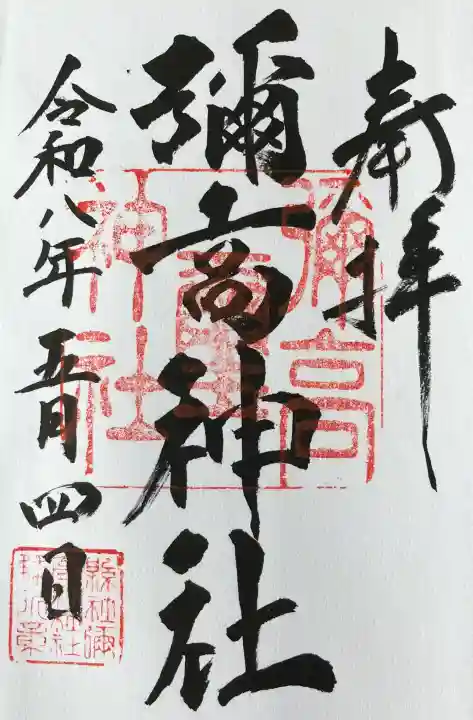 奉拝
彌高神社
令和八年五月四日
彌高
神社